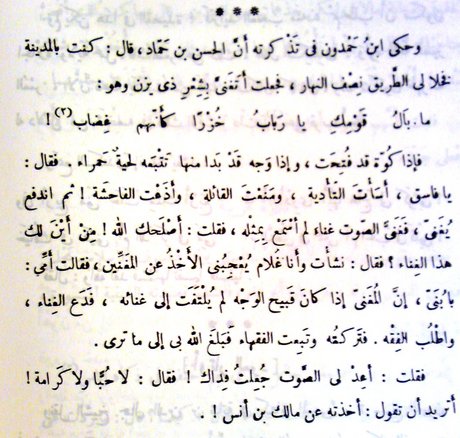 * * *
وحكى ابنُ حَمْدون فى تَذْكرته أنّ الحسن بن حَمّاد، قال: كنت بالمدينة
فخلا لى الطَّريق نِصْف النهار، فجعلت أتَغنَّى بِشِعْر ذى يزن وهو:
ما بَالُ قَوْمِكِ يا رَبابُ خُزْرًا كأنهم غِضاب(٢)!
فإذا كُوّة قد فُتِحَت، وإذا وَجه قَدْ بَدا منها تَتْبَعه لحيةٌ حَمراء. فقال:
يا فاسق، أسَأتَ التَأدية، ومَنَعْت القائلة، وأذَعْت الفاحشَة! ثم اندفع
يُغَنِّى، فَغَنَّى الصَّوت غناء لم أسْمَعْ بِمِثْله، فقلت: أصْلَحك الله! مِنْ أيْنَ لك
هذا الغناء؟ فقال: نشأت وأنا غُلام يُعْجِبُنى الأخْذُ عن المغَنِّين، فقالت أمِّى:
يا بُنَىّ، إنّ المُغَنِّى إذا كانَ قَبيح الوَجْه لم يُلْتَفَت إلى غنائه، فَدَع الغِناء،
واطْلُب الفِقْه. فتَركتُه وتَبِعت الفقهاء فَبَلَغ الله بى إلى ما ترى.
فقلت: أعِدْ لى الصَّوت جُعِلتُ فِداك! فقال: لا حُبًّا ولا كَرامة!
أتريد أن تقول: أخذته عن مالك بن أنس!.